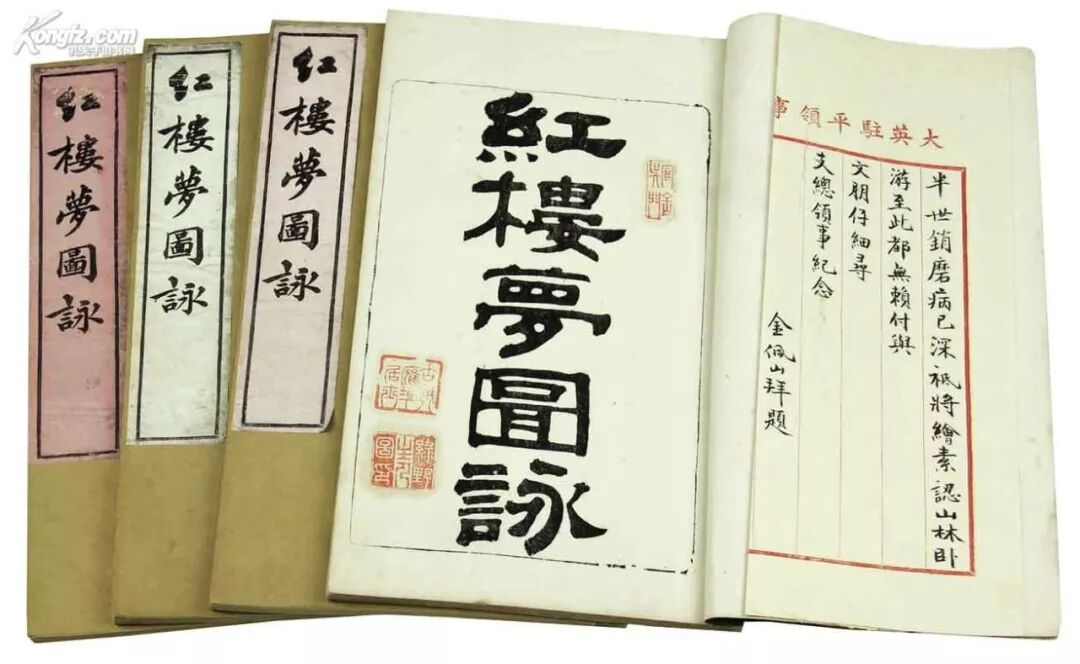 Kongfz.com
孔夫子旧书网
红樓夢圖詠
红樓夢圖詠
红樓夢圖詠
紅樓夢圖詠
大英駐平領事
半世銷磨病已深祗將繪素認山林卧
游至此都無賴付與
文朋仔細尋
支總領事紀念
金佩山拜題